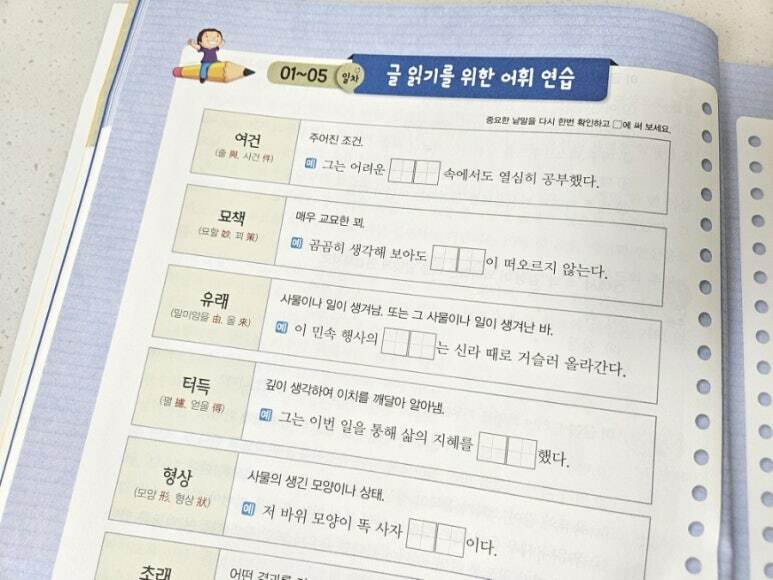 01~05 일차
글 읽기를 위한 어휘 연습
중요한 낱말을 다시 한번 확인하고 □에 써 보세요.
여건
(줄 與, 사건 件)
주어진 조건.
예 그는 어려운 □□ 속에서도 열심히 공부했다.
묘책
(묘할 妙, 꾀 策)
매우 교묘한 꾀.
예 곰곰히 생각해 보아도 □□이 떠오르지 않는다.
유래
(말미암을 由, 올 來)
사물이나 일이 생겨남. 또는 그 사물이나 일이 생겨난 바.
예 이 민속 행사의 □□는 신라 때로 거슬러 올라간다.
터득
(펼 攄, 얻을 得)
깊이 생각하여 이치를 깨달아 알아냄.
예 그는 이번 일을 통해 삶의 지혜를 □□했다.
형상
(모양 形, 형상 狀)
사물의 생긴 모양이나 상태.
예 저 바위 모양이 똑 사자 □□이다.
초래
어떤 결과를